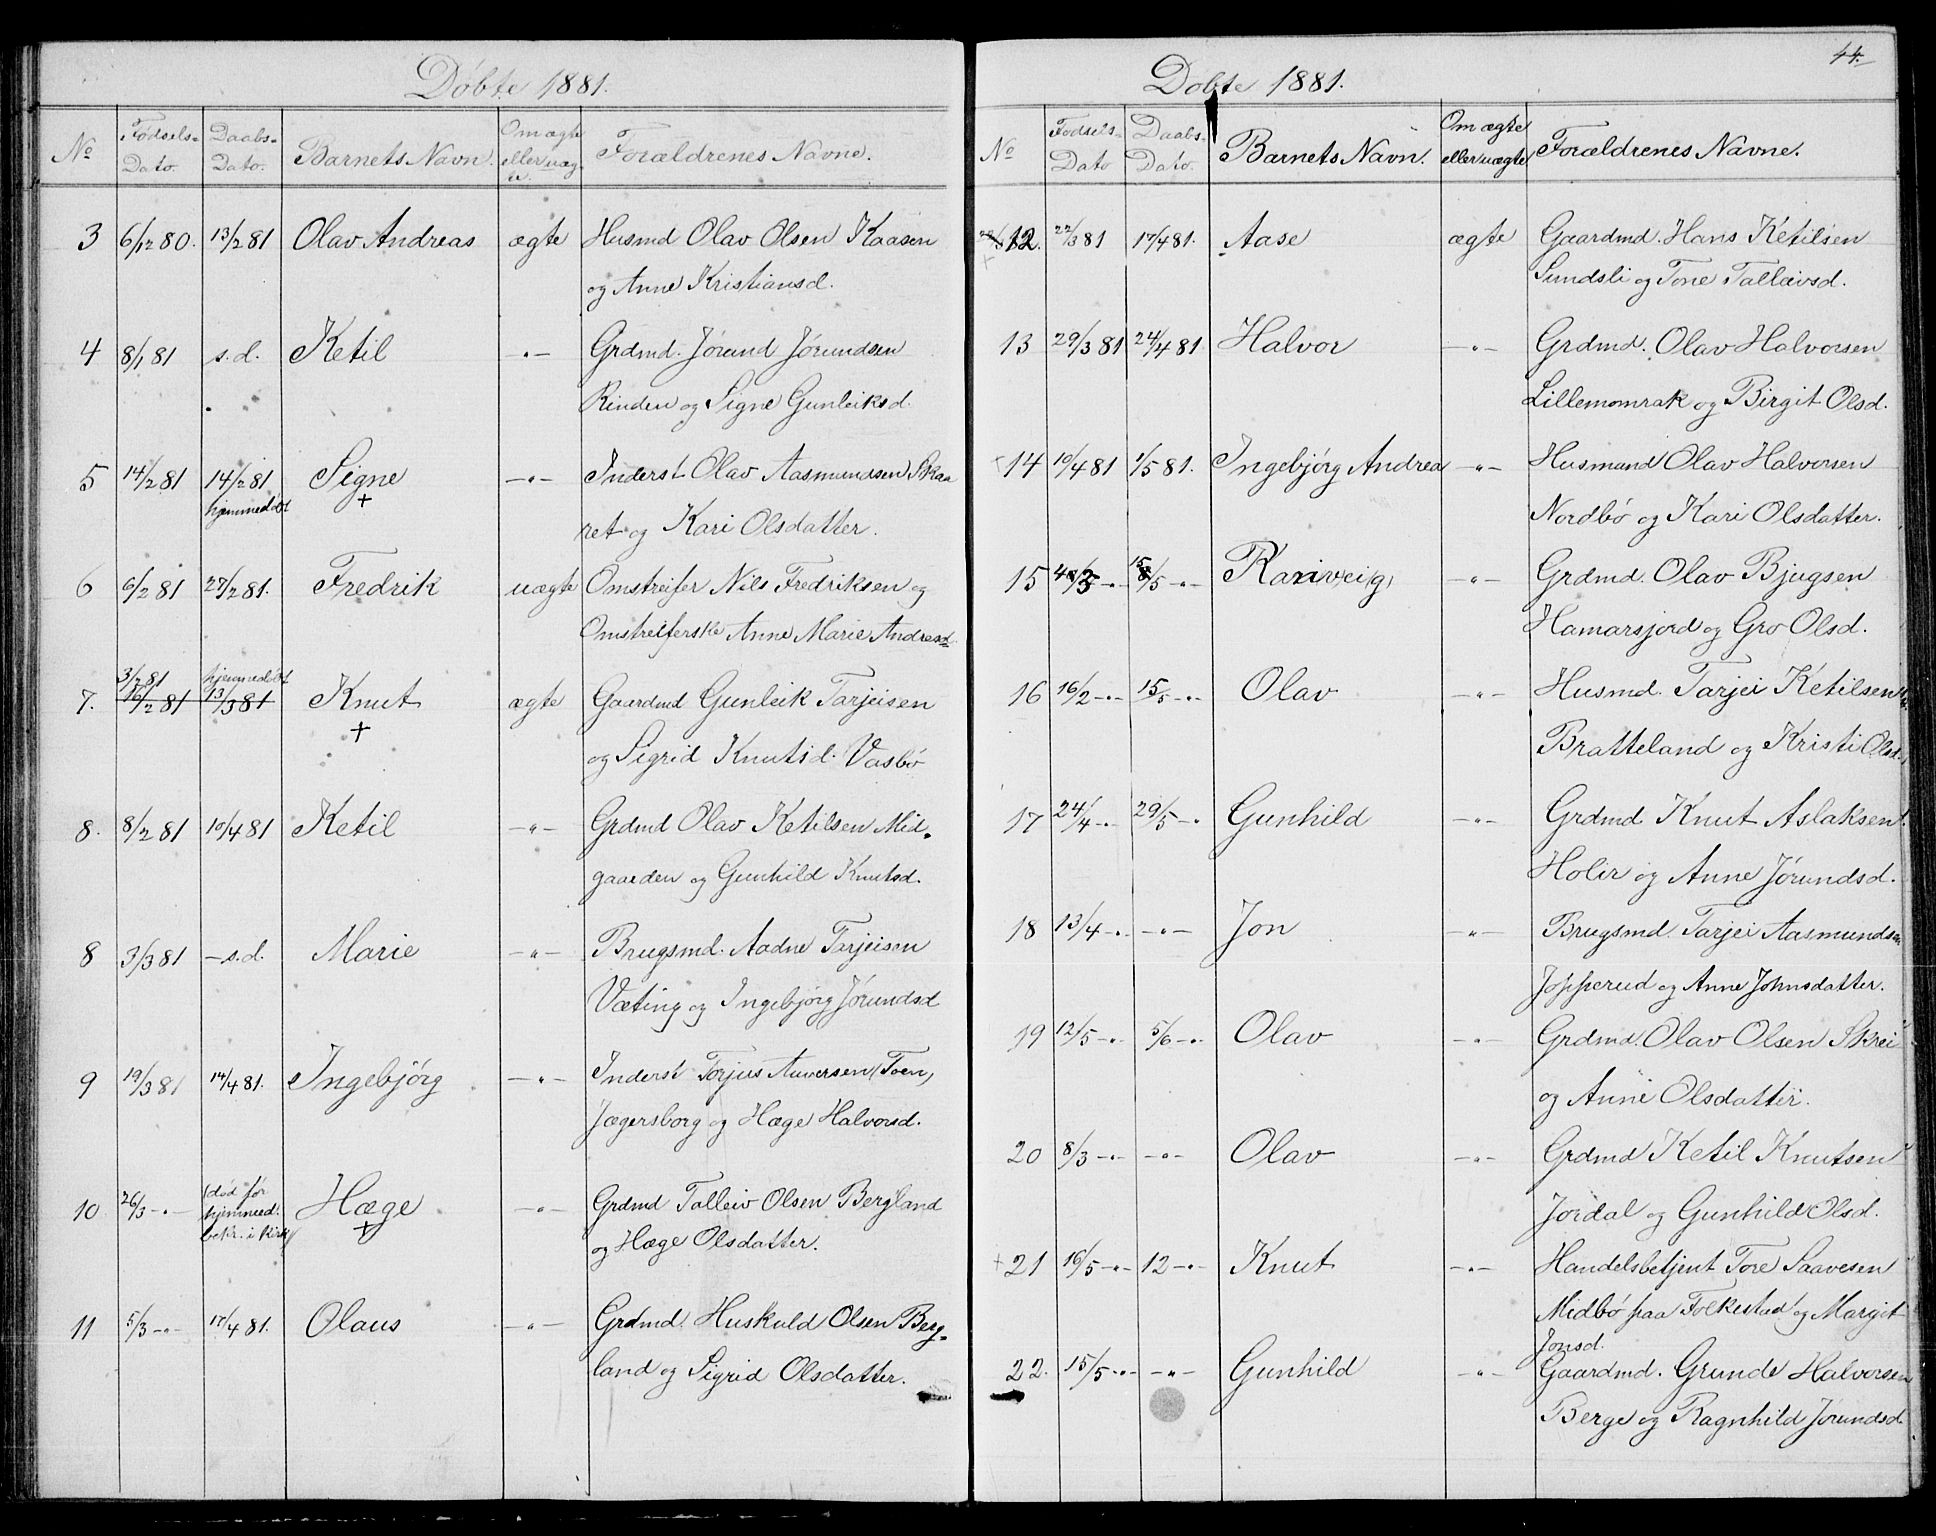 Døbte 1881.
No Fødsels-Dato. Daabs-Dato. Barnets Navn. Om ægte eller uægte. Forældrenes Navne.
3 6/12 80. 13/2 81 Olav Andreas ægte Husmd Olav Olsen Kaasen
og Anne Kristiansd.
4 8/1 81 s.d. Ketil -"- Grdmd. Jørund Jørundsen
Rinden og Signe Gunleiksd.
5 14/2 81 14/2 81 Signe -"- Inderst Olav Aasmundsen Skaa
hjemmedøbt + ret og Kari Olsdatter.
6 6/2 81 27/2 81. Fredrik uægte Omstreifer Nils Fredriksen og
Omstreiferske Anne Marie Andreasd.
3/2 81 hjemmedøbt
7. 16/2 81 13/3 81 Knut ægte Gaardmd Gunleik Tarjeisen
+ og Sigrid Knutsd. Vasbø
8. 8/2 81 10/4 81 Ketil -"- Grdmd Olav Ketilsen Mid-
gaarden og Gunhild Knutsd.
8 3/3 81 -s.d. Marie -"- Brugsmd. Aadne Tarjeisen
Væting og Ingebjørg Jørundsd
9 19/3 81 14/4 81. Ingebjørg -"- Inderst Torjus Auversen (Toen)
Jægersborg og Hæge Halvorsd.
10 26/3 -"- (død før hjemmed. bekr. i kirk) Hæge -"- Grdmd Talleiv Olsen Bergland
+ og Hæge Olsdatter.
11 5/3 -"- 17/4 81. Olaus -"- Grdmd. Huskuld Olsen Berg-
land og Sigrid Olsdatter.
44.
Døbte 1881.
No Fødsels-Dato Daabs-Dato. Barnets Navn. Om ægte eller uægte Forældrenes Navne.
12. 22/3 81 17/4 81. Aase ægte Gaardmd. Hans Ketilsen
+ Sundsli og Tone Tallævsd.
13 29/3 81 24/4 81 Halvor -"- Grdmd. Olav Halvorsen
Lillemomrak og Birgit Olsd.
+ 14 10/4 81 1/5 81. Ingebjørg Andrea -"- Husmand Olav Halvorsen
Nordbø og Kari Olsdatter.
15 4/3 -"- 15/5 -"- Kariveig -"- Grdmd. Olav Bjugsen
Hamarsjord og Gro Olsd.
16 16/2 -"- 15/5 -"- Olav -"- Husmd. Tarjei Ketilsen
Bratteland og Kristi Olsd.
17 24/4 -"- 29/5 -"- Gunhild -"- Grdmd Knut Aslaksen
Holir og Anne Jørundsd.
18 13/4 -"- -"- Jon -"- Brugsmd. Tarjei Aasmundsen
Jøpperud og Anne Johnsdatter.
19 12/5 -"- 5/6 -"- Olav -"- Grdmd. Olav Olsen Skrei
og Anne Olsdatter.
20 8/3 -"- -"- Olav -"- Grdmd Ketil Knutsen
Jordal og Gunhild Olsd.
+ 21 16/5 -"- 12 -"- Knut -"- Handelsbetjent Tore Saavesen
Midbø paa Folkestad og Margit
Jonsd.
22. 15/5 -"- -"- Gunhild -"- Gaardmd. Grunde Halvorsen
Berge og Ragnhild Jørundsd.